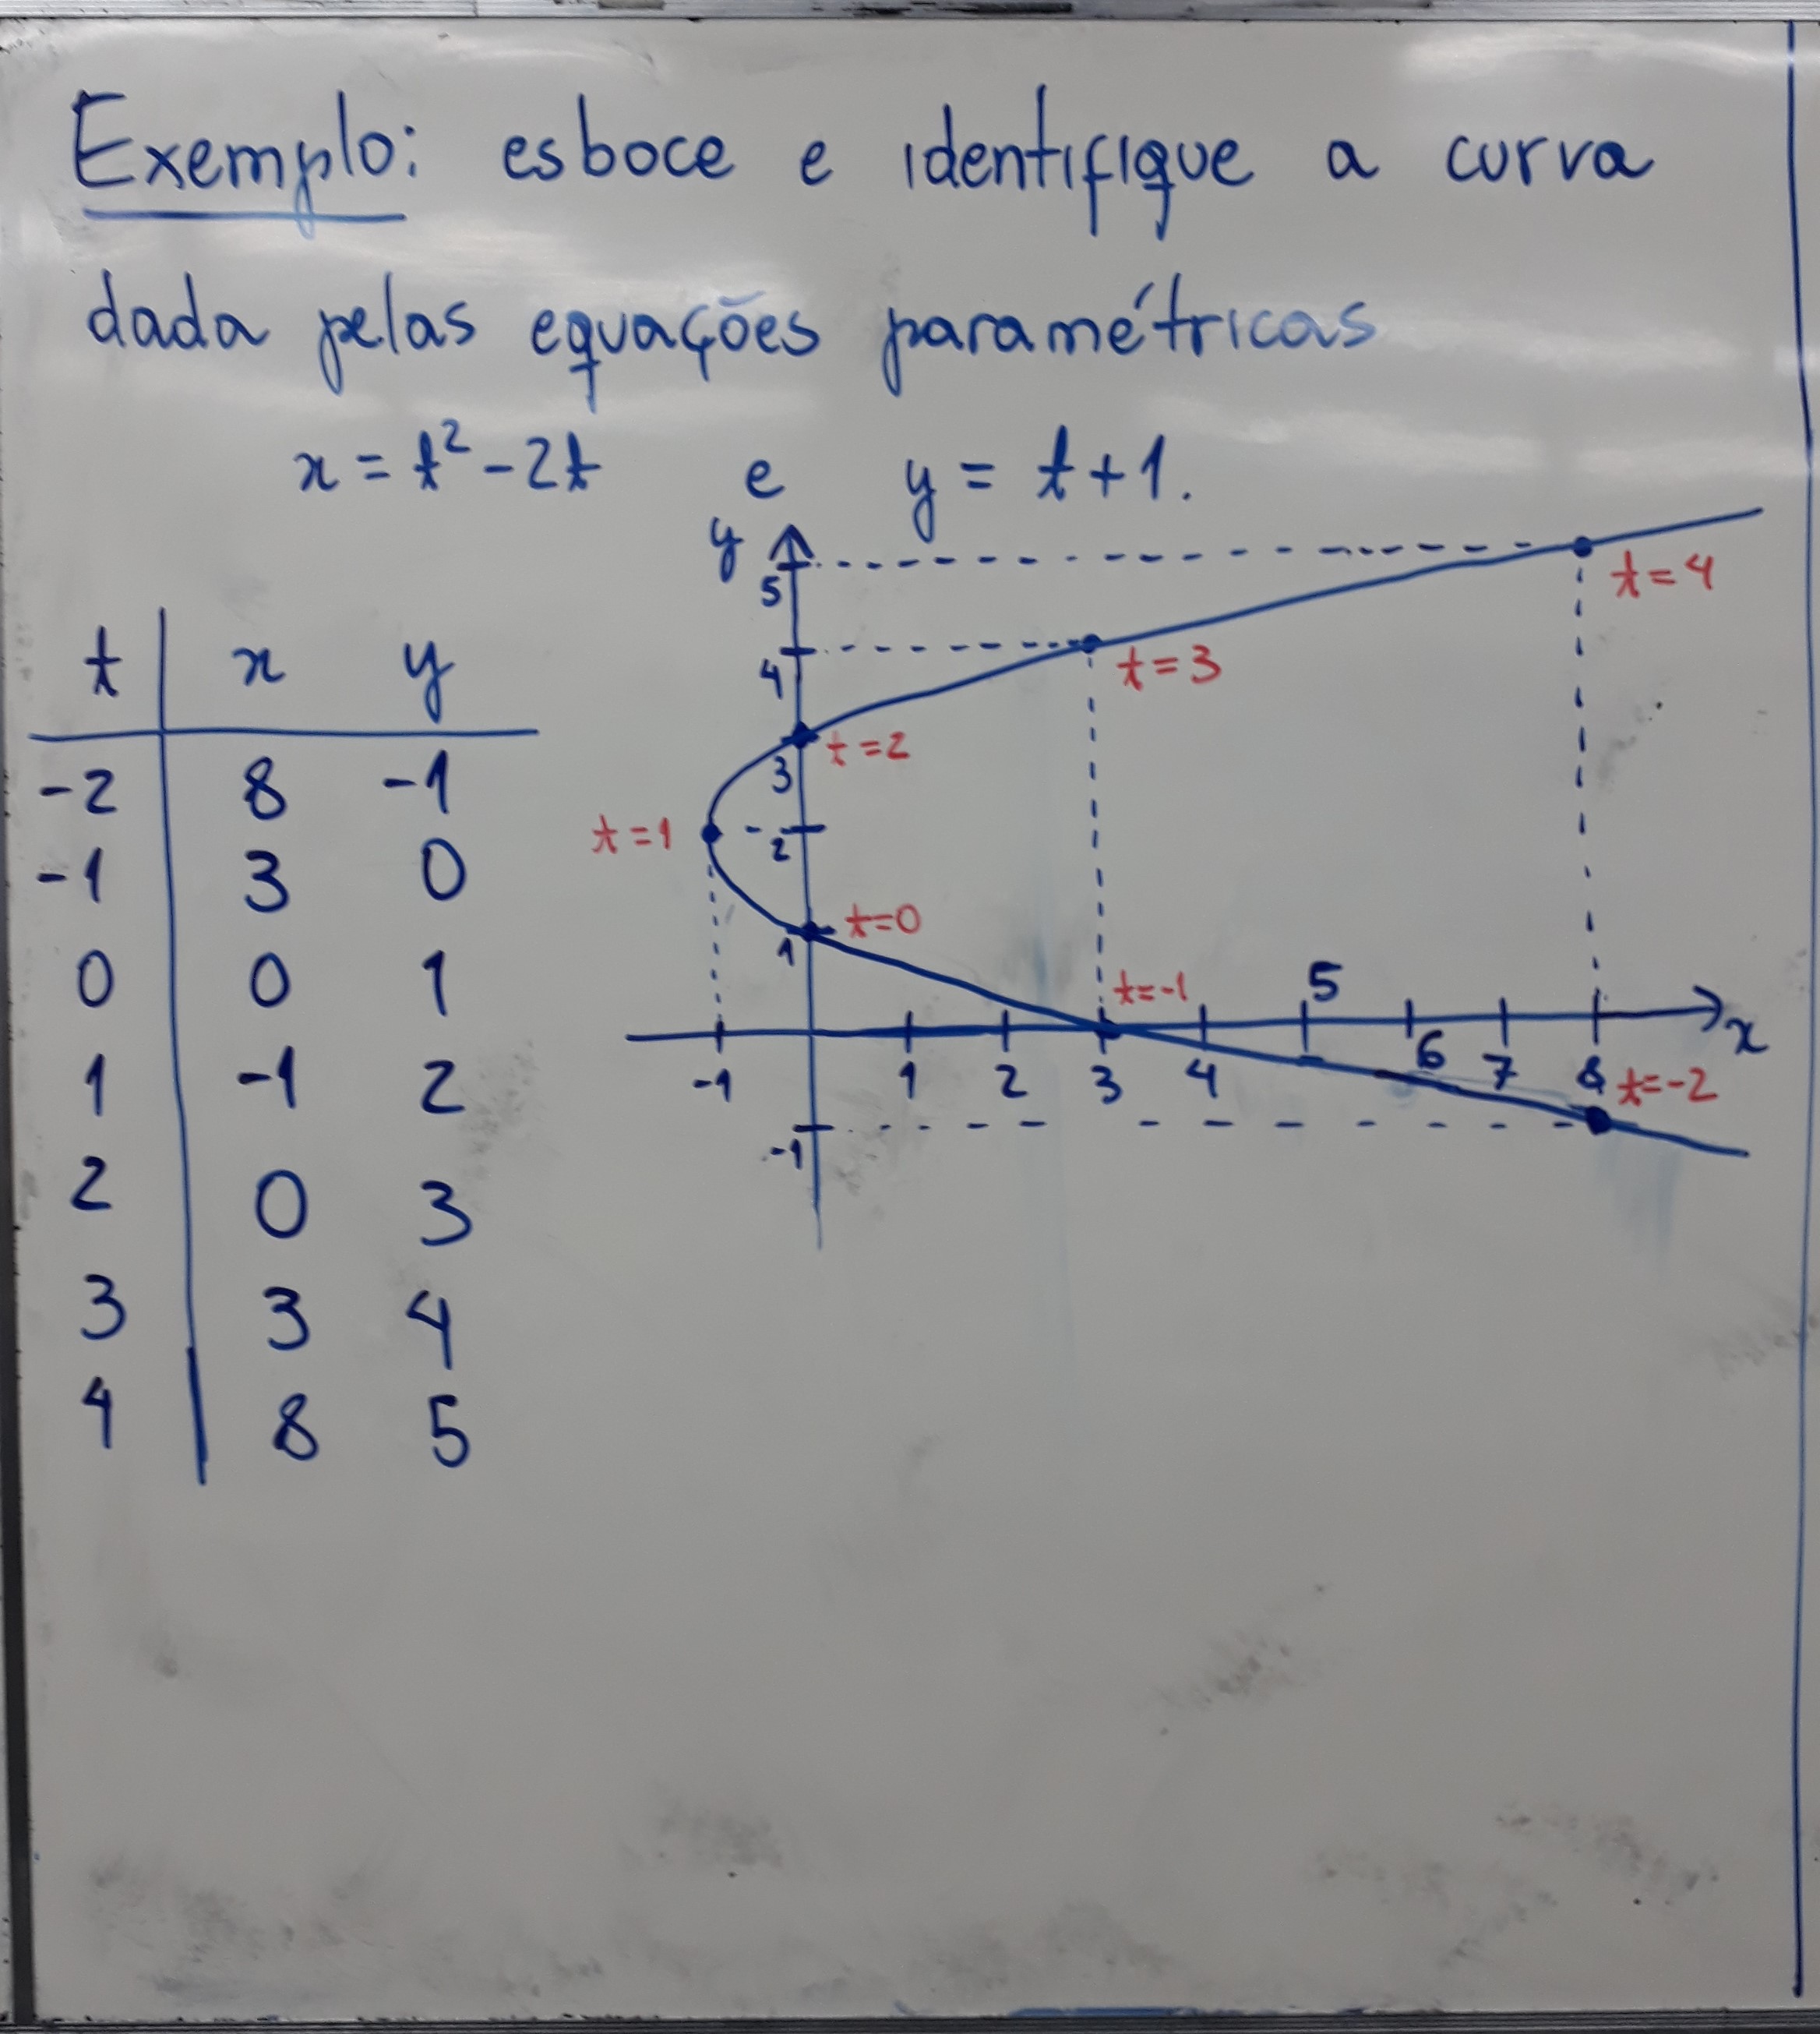 Exemplo: esboce e identifique a curva
dada pelas equações paramétricas
x = t² - 2t e y = t + 1.
t x y
-2 8 -1
-1 3 0
0 0 1
1 -1 2
2 0 3
3 3 4
4 8 5
y
5
t = 4
4
t = 3
3
t = 2
t = 1
2
1
t = 0
t = -1
5
x
-1 1 2 3 4 6 7 8
t = -2
-1